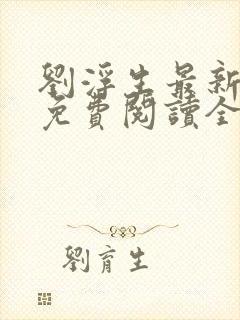 劉浮生最新
免費閱讀全
劉育生